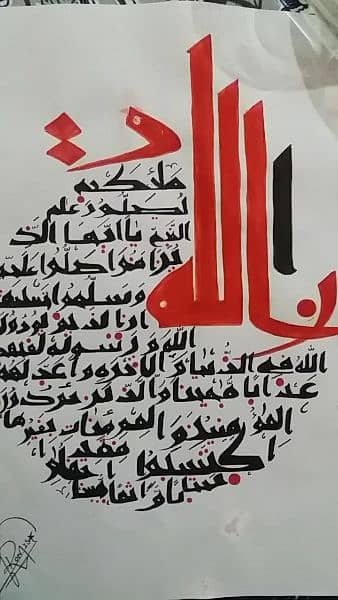 ان الله و
ملئكته
يصلون علي
النبي يا ايها الذ
ين امنوا صلوا عليه
وسلموا تسليما
ان الذين يوذون
الله ورسوله لعنهم
الله في الدنيا والاخرة واعد لهم
عذابا مهينا والذين يوذون
المؤمنين والمؤمنات بغير ما
اكتسبوا فقد احتملوا
بهتانا واثما مبينا